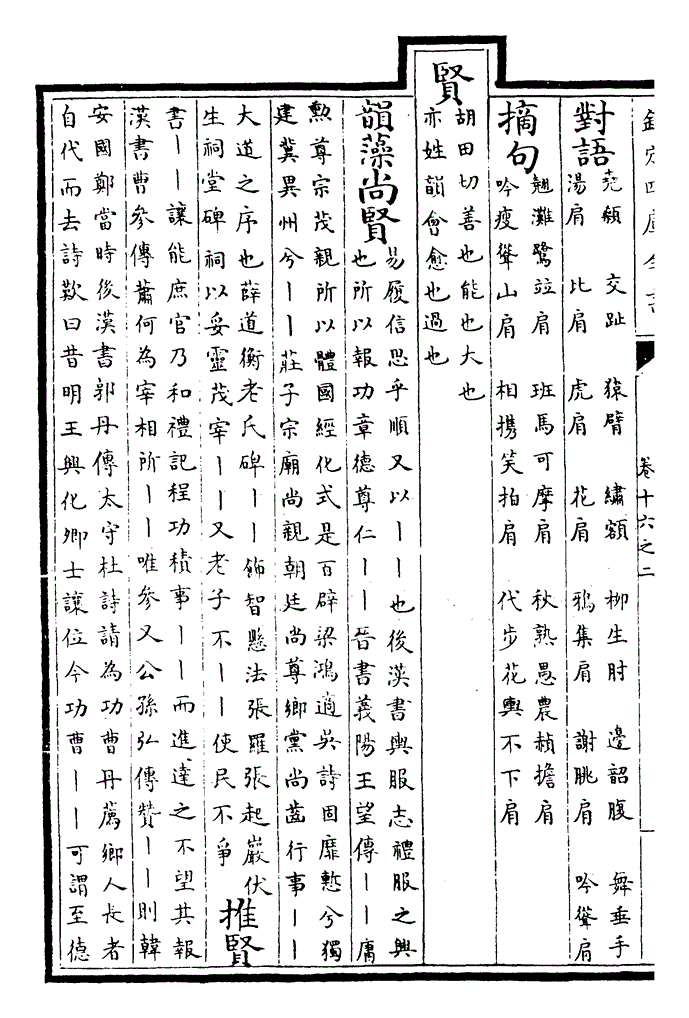 欽定四庫全書
卷十六之二
對語
堯顙　交趾　猿臂　繡額　柳生肘　邊韶腹　舞垂手
湯肩　比肩　虎肩　花肩　鴉集肩　謝朓肩　吟聳肩
摘句
翹灘鷺竝肩　班馬可摩肩　秋熟愚農赬擔肩
吟瘦聳山肩　相携笑拍肩　代步花輿不下肩
賢
胡田切善也能也大也
亦姓韻會愈也過也
韻藻尚賢
易履信思乎順又以——也後漢書輿服志禮服之興
也所以報功章德尊仁——晉書義陽王望傳——庸
勲尊宗茂親所以體國經化式是百辟梁鴻適吳詩固靡慙兮獨
建冀異州兮——莊子宗廟尚親朝廷尚尊鄉黨尚齒行事——
大道之序也薛道衡老氏碑——飾智懸法張羅張起巖伏
生祠堂碑祠以妥靈茂宰——又老子不——使民不爭
推賢
書——讓能庶官乃和禮記程功積事——而進達之不望其報
漢書曹參傳蕭何為宰相所——唯參又公孫弘傳贊——則韓
安國鄭當時後漢書郭丹傳太守杜詩請為功曹丹薦鄉人長者
自代而去詩歎曰昔明王興化卿士讓位今功曹——可謂至德